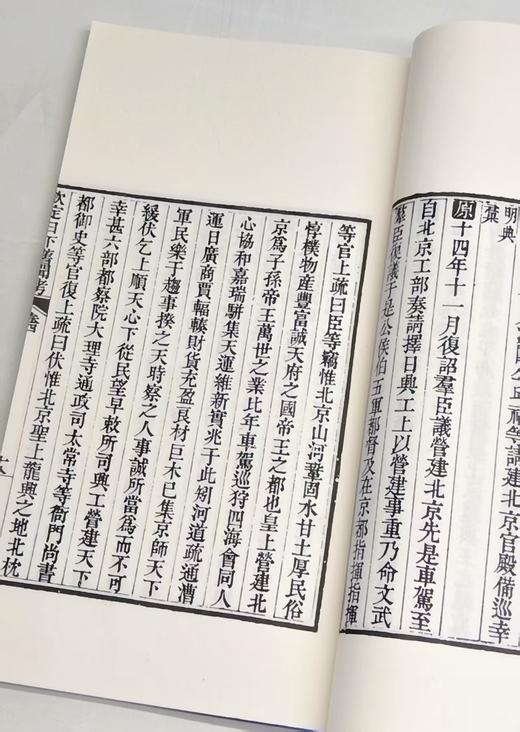 明典
彙
原十四年十一月復詔羣臣議營建北京先是車駕至
自北京工部奏請擇日興工上以營建事重乃命文武
羣臣復議于是公侯伯五軍都督及在京都指揮指揮
等官上疏曰臣等竊惟北京山河鞏固水甘土厚民俗
惇樸物産豐富誠天府之國帝王之都也皇上營建北
京爲子孫帝王萬世之業比年車駕巡狩四海會同人
心協和嘉瑞駢集天運維新實兆于此矧河道疏通漕
運日廣商賈輻輳財貨充盈良材巨木已集京師天下
軍民樂于趨事揆之天時察之人事誠所當爲而不可
緩伏乞上順天心下從民望早敕所司興工營建天下
幸甚六部都察院大理寺通政司太常寺等衙門尚書
都御史等官復上疏曰伏惟北京聖上龍興之地北枕
欽定日下舊聞考